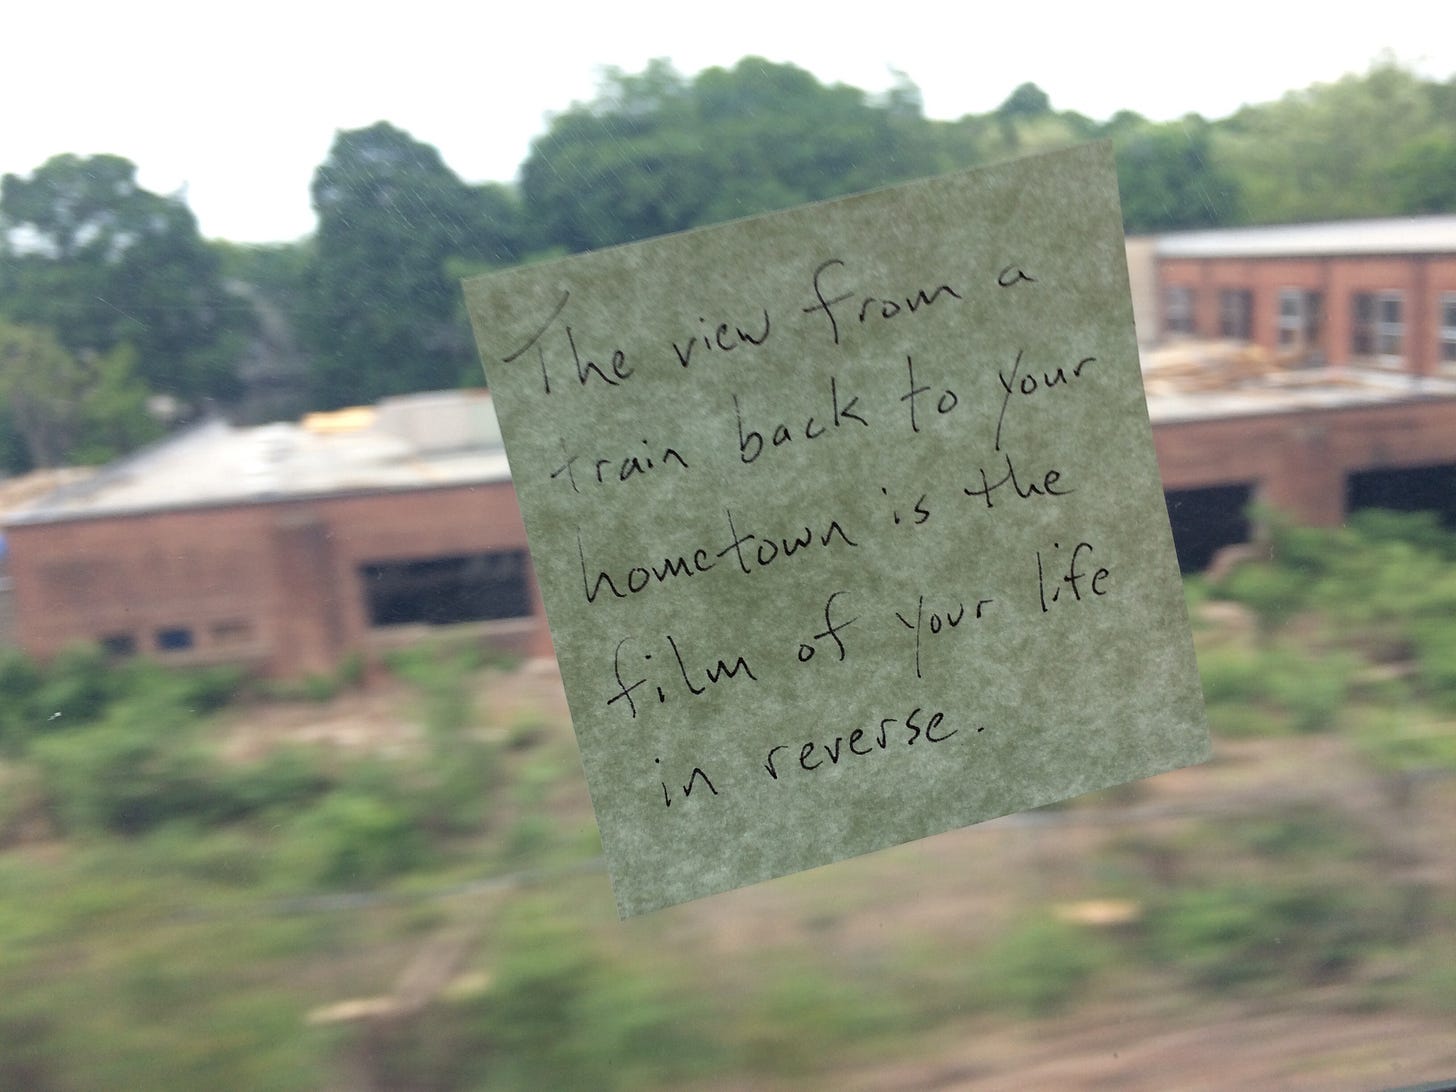 The view from a
train back to your
hometown is the
film of your life
in reverse.